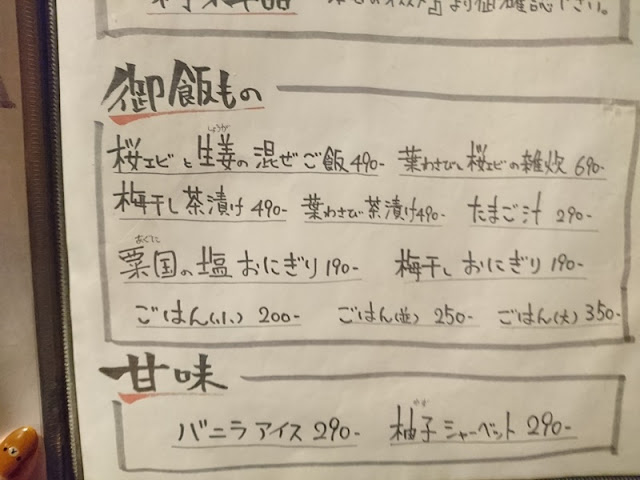 より御確認下さい。
御飯もの
桜エビと生姜の混ぜご飯 490- 葉わさびと桜エビの雑炊 690-
梅干し茶漬け 490- 葉わさび茶漬け 490- たまご汁 290-
粟国の塩おにぎり 190- 梅干しおにぎり 190-
ごはん(小) 200- ごはん(並) 250- ごはん(大) 350-
甘味
バニラアイス 290- 柚子シャーベット 290-